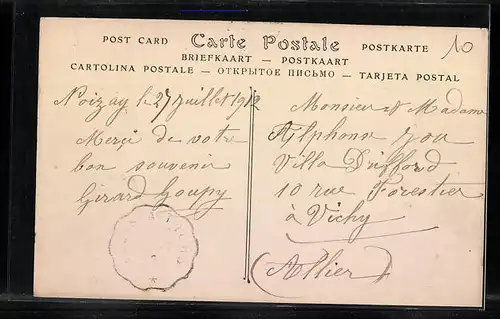 10
POST CARD Carte Postale POSTKARTE
BRIEFKAART — POSTKAART
CARTOLINA POSTALE — ОТКРЫТОЕ ПИСЬМО — TARJETA POSTAL
Noizay le 27 juillet 1912
Merci de votre
bon souvenir
Girard Goupy
Monsieur et Madame
Alphonse
Villa
10 rue Forestier
à Vichy
(Allier)